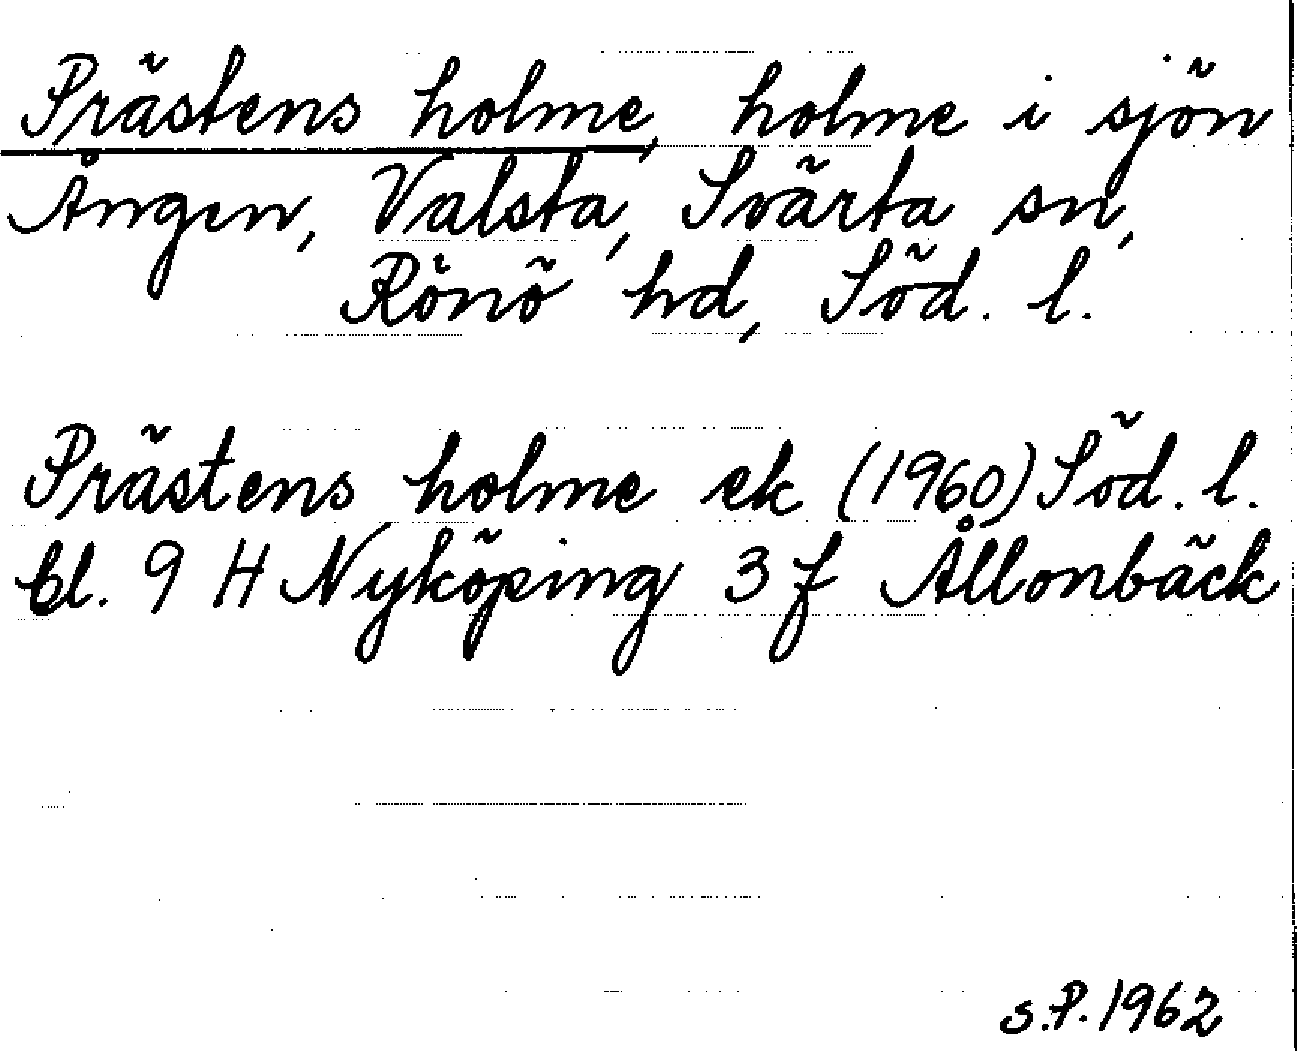 Prästens holme, holme i sjön
Ången, Valsta, Svärta sn,
Rönö hd, Söd. l.
Prästens holme ek (1960) Söd. l.
bl. 9 H Nyköping 3 f Ållonbäck
S.P. 1962